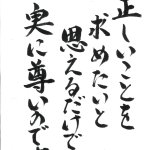 正しいことを
求めたいと
思えるだけで
実に尊いので